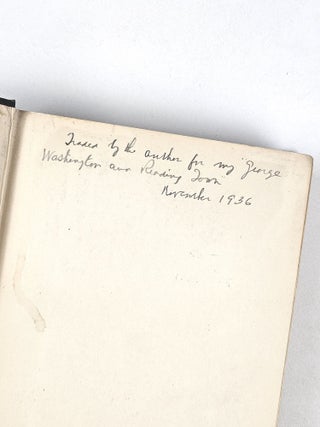 Traded by the author for my "George
Washington and Reading Town"
November 1936